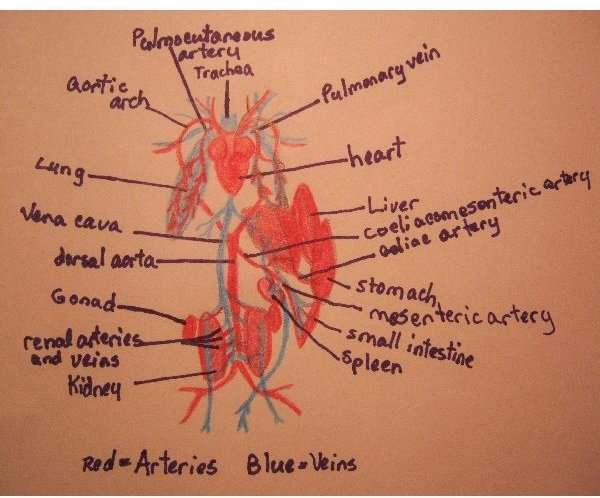 Pulmocutaneous
artery
Trachea
Aortic
arch
Pulmonary vein
Lung
heart
Liver
coeliacomesenteric artery
Vena cava
celiac artery
dorsal aorta
Gonad
stomach
mesenteric artery
renal arteries
and veins
small intestine
Kidney
Spleen
Red = Arteries Blue = Veins